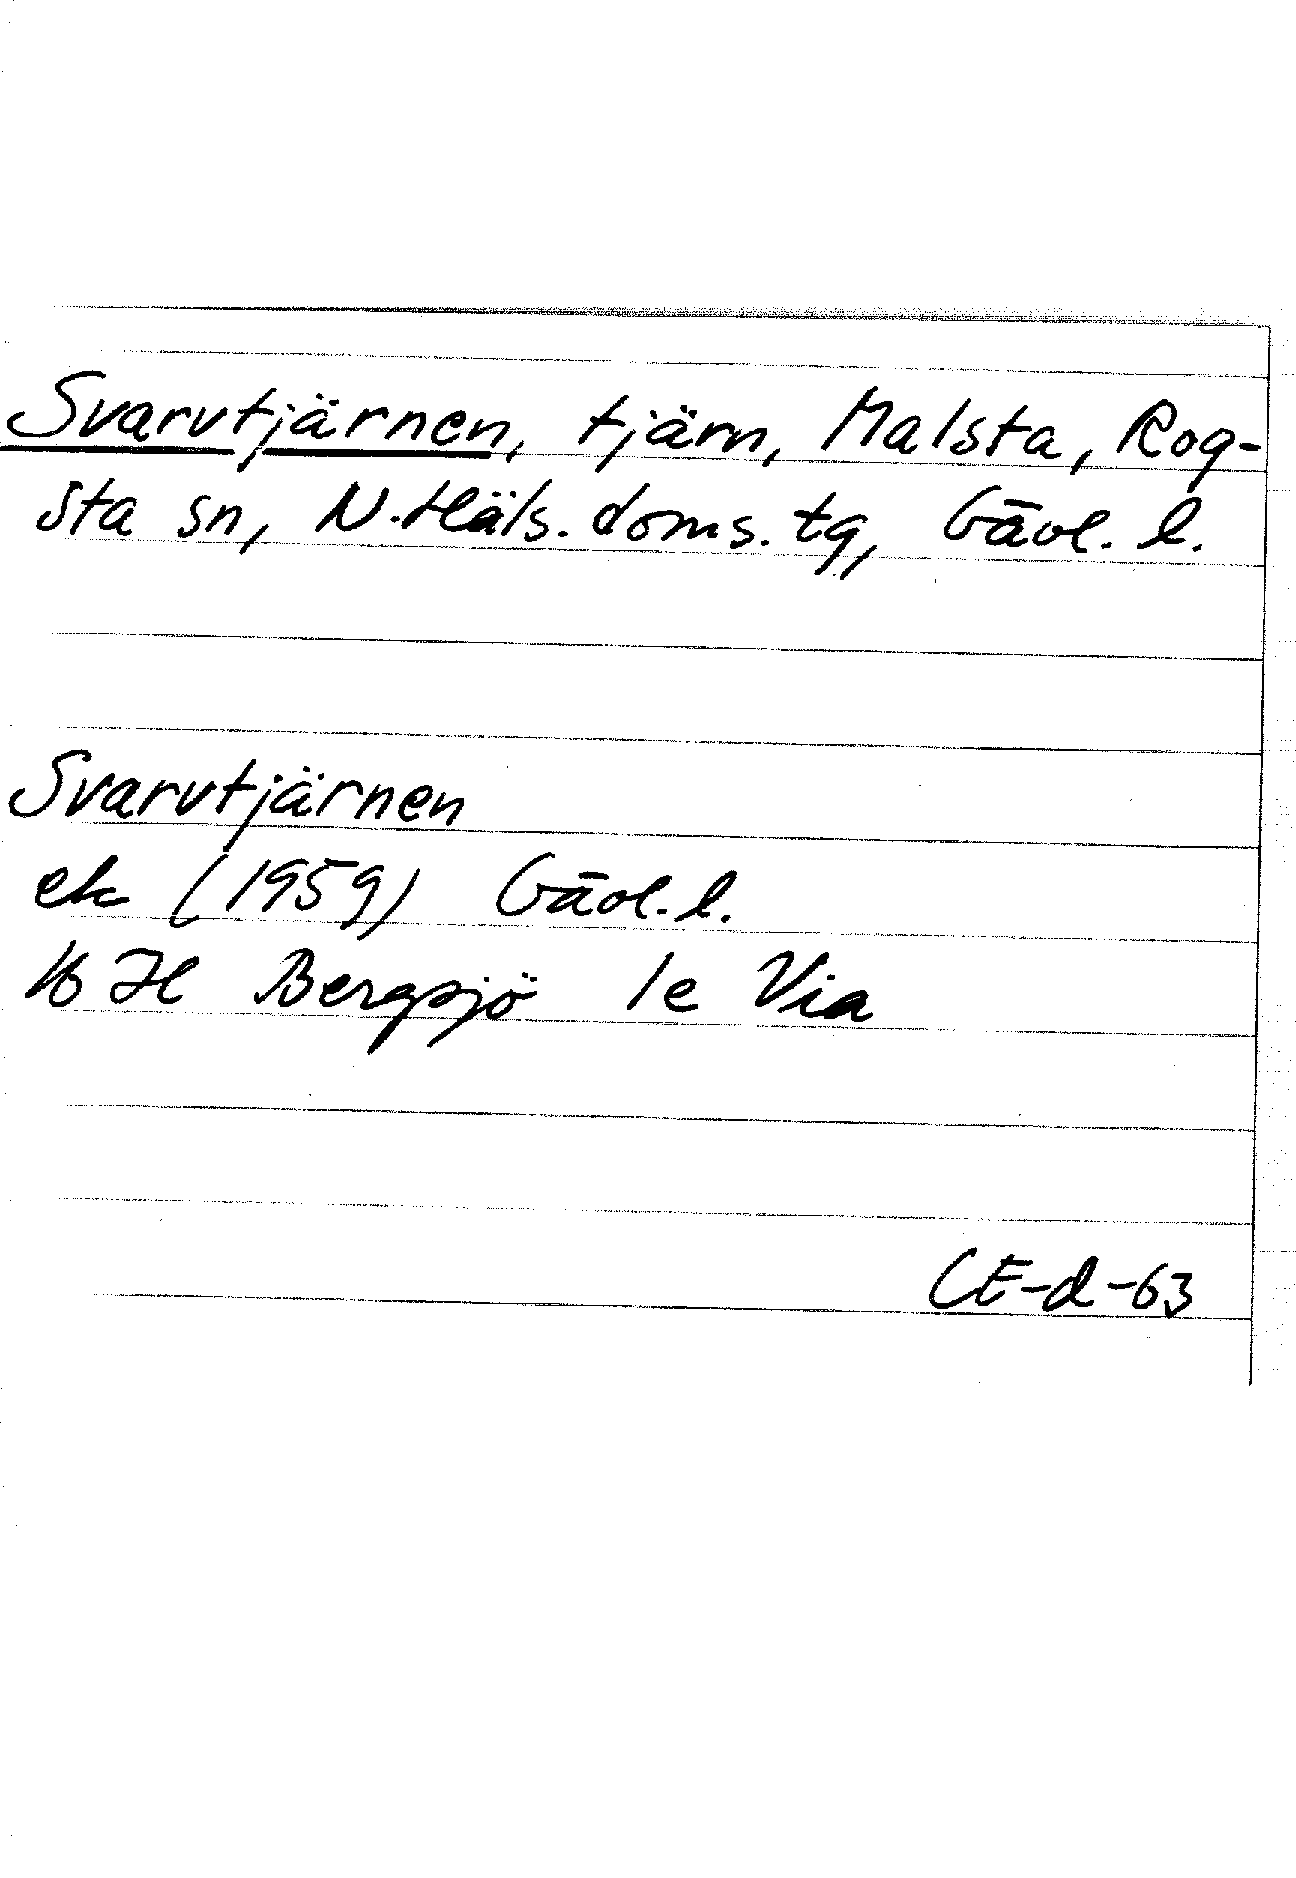 Svarvtjärnen, tjärn, Malsta, Rog-
sta sn, N. Häls. doms. tg, Gävl. l.
Svarvtjärnen
ek (1959) Gävl. l.
16 H Bergsjö 1e Via
CE-d-63